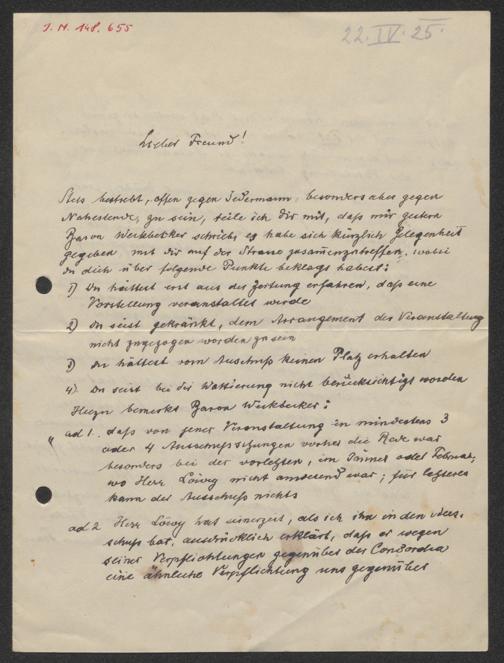 J. N. 148.655
22. IV. 25.
Lieber Freund!
Stets bestrebt, offen gegen Jedermann, besonders aber gegen
Nahestehende, zu sein, teile ich Dir mit, daß mir gestern
Baron Weckbecker schrieb, es habe sich kürzlich Gelegenheit
gegeben mit Dir auf der Strasse zusammenzutreffen, wobei
Du dich über folgende Punkte beklagt habest:
1) Du hättest erst aus der Zeitung erfahren, daß eine
Vorstellung veranstaltet werde
2) Du seist gekränkt, dem Arrangement der Veranstaltung
nicht zugezogen worden zu sein
3) Du hättest vom Ausschuß keinen Platz erhalten
4) Du seist bei der Wahlierung nicht berücksichtigt worden
Hiezu bemerkt Baron Weckbecker:
" ad 1. daß von jener Veranstaltung in mindestens 3
oder 4 Ausschußsitzungen vorher die Rede war
besonders bei der vorletzten, im Jänner oder Februar,
wo Herr Löwy nicht anwesend war; für letzteres
kann der Ausschuß nichts
ad 2 Herr Löwy hat seinerzeit, als ich ihn in den Aus-
schuß bat, ausdrücklich erklärt, daß er wegen
seiner Verpflichtungen gegenüber der Concordia
eine ähnliche Verpflichtung uns gegenüber